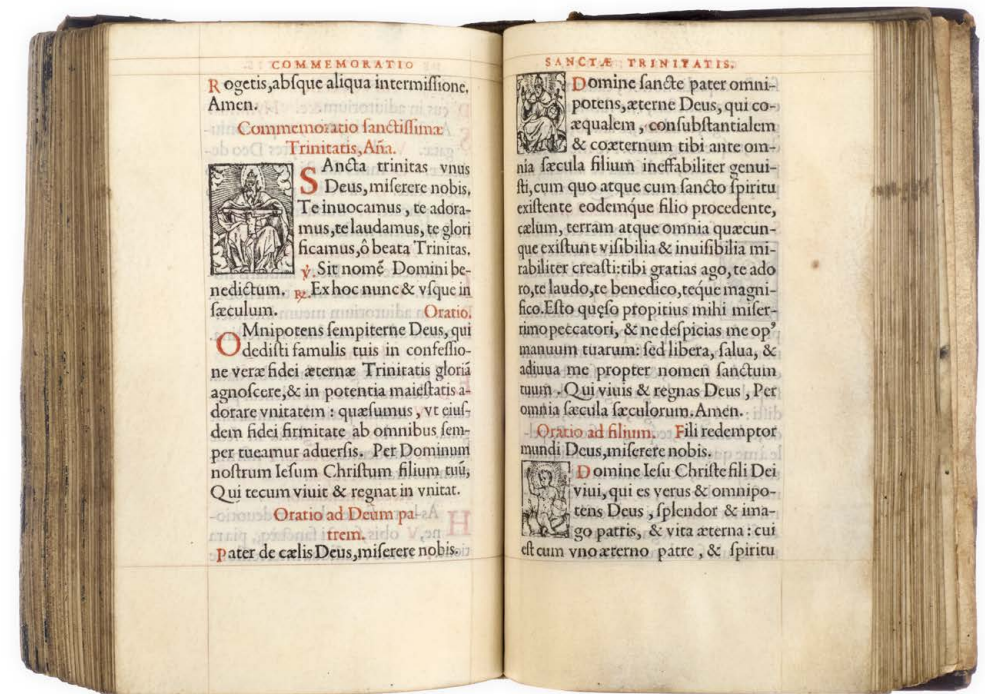 COMMEMORATIO
Rogetis,abſque aliqua intermiſſione.
Amen.
Commemoratio ſanctiſſimæ
Trinitatis, Aña.
SAncta trinitas vnus
Deus,miſerere nobis.
Te inuocamus, te adora-
mus,te laudamus, te glori
ficamus,ô beata Trinitas.
℣. Sit nomẽ Domini be-
nedictum. ℟. Ex hoc nunc & vſque in
ſæculum. Oratio.
OMnipotens ſempiterne Deus, qui
dediſti famulis tuis in confeſſio-
ne veræ fidei æternæ Trinitatis gloriã
agnoſcere,& in potentia maieſtatis a-
dorare vnitatem : quæſumus, vt eiuſ-
dem fidei firmitate ab omnibus ſem-
per tueamur aduerſis. Per Dominum
noſtrum Ieſum Chriſtum filium tuũ,
Qui tecum viuit & regnat in vnitat.
Oratio ad Deum pa-
trem.
Pater de cælis Deus,miſerere nobis.
SANCTÆ TRINITATIS.
Domine ſancte pater omni-
potens,æterne Deus, qui co-
æqualem, conſubſtantialem
& coæternum tibi ante om-
nia ſæcula filium ineffabiliter genui-
ſti,cum quo atque cum ſancto ſpiritu
exiſtente eodemq́ue filio procedente,
cælum, terram atque omnia quæcun-
que exiſtunt viſibilia & inuiſibilia mi-
rabiliter creaſti:tibi gratias ago,te ado
ro,te laudo,te benedico,teque magni-
fico.Eſto quęſo propitius mihi miſer-
rimo peccatori, & ne deſpicias me opꝰ
manuum tuarum: ſed libera, ſalua, &
adiuua me propter nomen ſanctum
tuum. Qui viuis & regnas Deus, Per
omnia ſæcula ſæculorum.Amen.
Oratio ad filium. Fili redemptor
mundi Deus,miſerere nobis.
Domine Ieſu Chriſte fili Dei
viui, qui es verus & omnipo-
tens Deus, ſplendor & ima-
go patris, & vita æterna : cui
eſt cum vno æterno patre, & ſpiritu